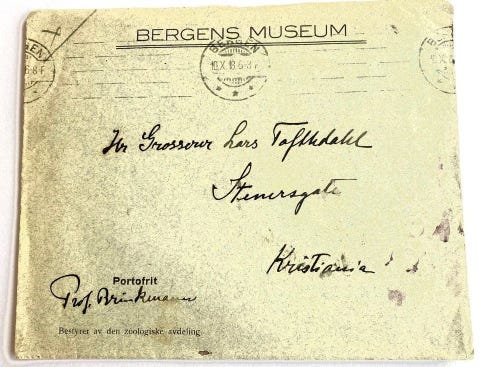 BERGENS MUSEUM
BERGEN
19 X 18 6-8 F
Hr Grosserer Lars
Stenersgate
Kristiania
Portofrit
Prof. Brinkmann
Bestyrer av den zoologiske avdeling